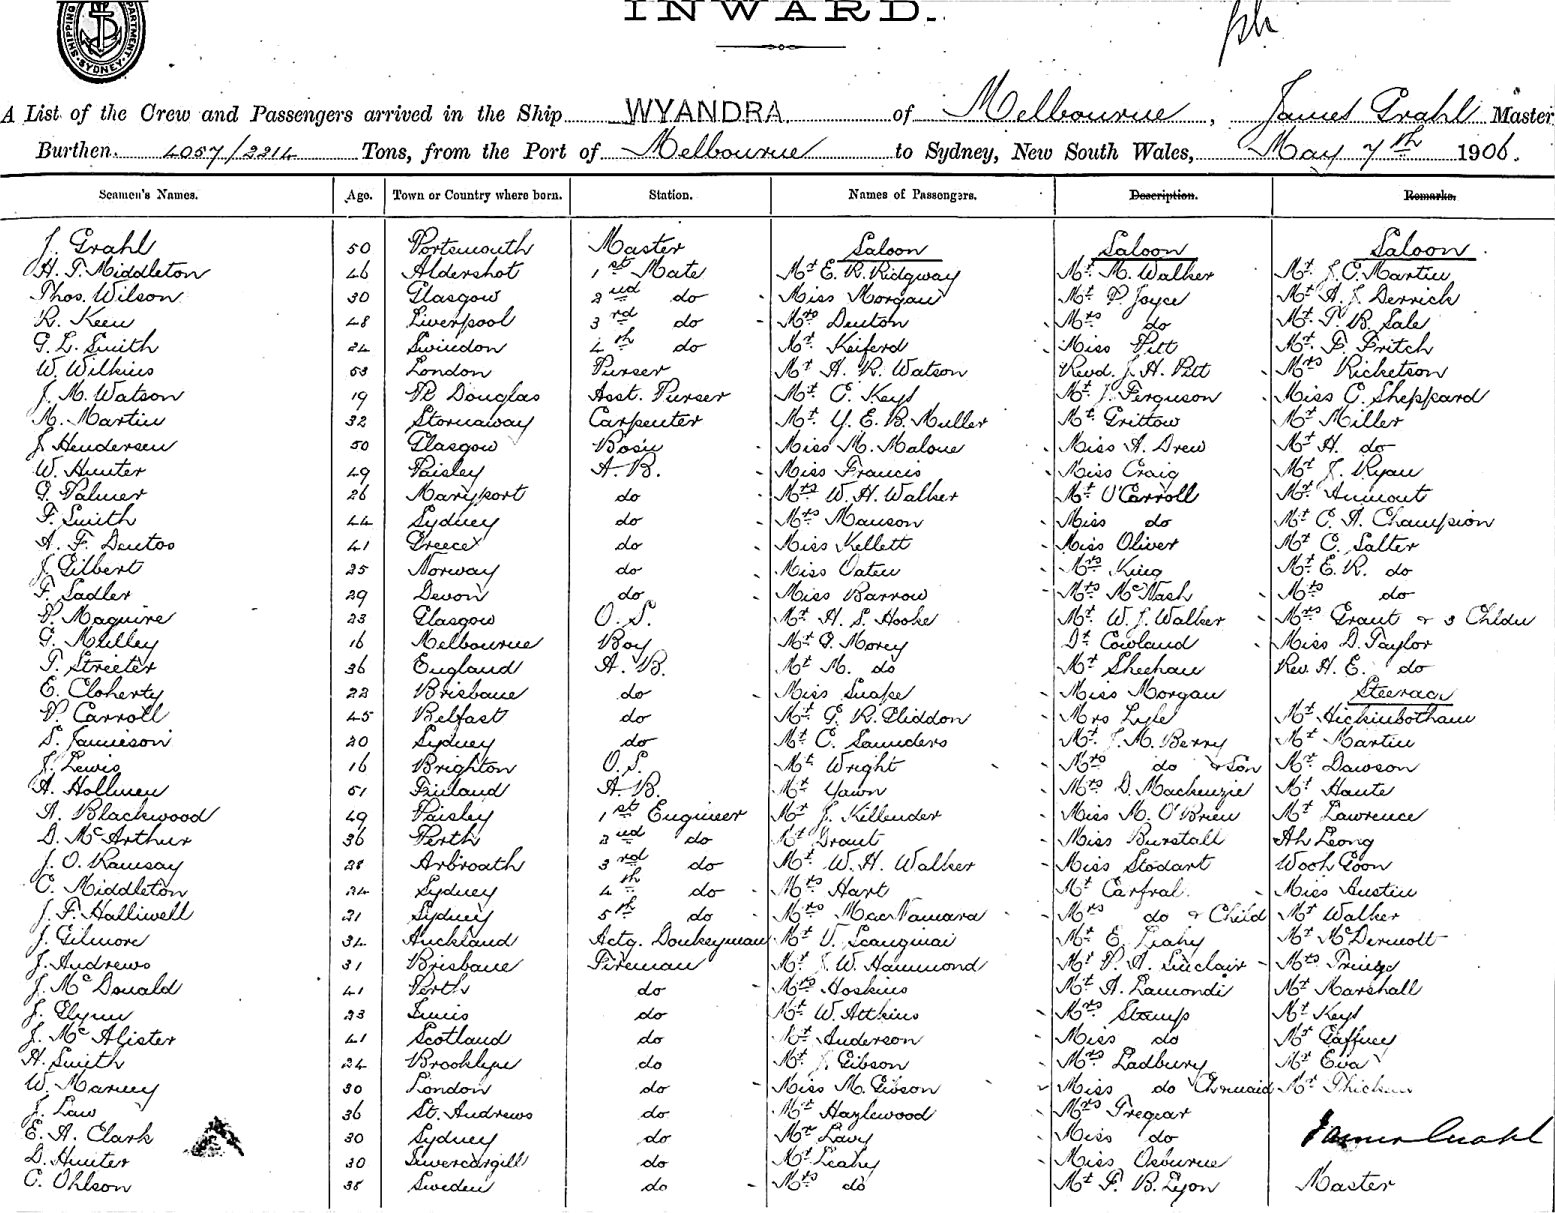 SHIPPING DEPARTMENT. SYDNEY.
INWARD.
A List of the Crew and Passengers arrived in the Ship WYANDRA of Melbourne, James Grahl Master
Burthen 4057/2214 Tons, from the Port of Melbourne to Sydney, New South Wales, May 7th 1906.
Seamen's Names. Age. Town or Country where born. Station. Names of Passengers. Description. Remarks.
J. Grahl 50 Portsmouth Master Saloon Saloon Saloon
H. T. Middleton 46 Aldershot 1st Mate Mr E. R. Ridgway Mr M. Walker Mr J. C. Martin
Thos. Wilson 30 Glasgow 2nd do Miss Morgan Mr P. Joyce Mr A. J. Derrick
R. Keen 48 Liverpool 3rd do Mrs Denton Mrs do Mr T. B. Sale
G. L. Smith 24 Swindon 4th do Mr Keiferd Miss Pitt Mr F. Fritch
W. Wilkins 53 London Purser Mr A. R. Watson Revd. J. H. Pitt Mrs Ricketson
J. M. Watson 19 Pt Douglas Asst. Purser Mr C. Keys Mr J. Ferguson Miss C. Sheppard
M. Martin 32 Stornaway Carpenter Mr Y. E. B. Muller Mr Grittow Mr Miller
J. Hendersen 50 Glasgow Bosin Miss M. Malone Miss A. Drew Mr H. do
W. Hunter 49 Paisley A. B. Miss Francis Miss Craig Mr J. Ryan
G. Palmer 26 Maryport do Mrs W. H. Walker Mr O'Carroll Mr
F. Smith 44 Sydney do Mrs Manson Miss do Mr C. A. Champion
A. F. Dentos 41 Greece do Miss Kellett Miss Oliver Mr C. Salter
J. Gilbert 25 Norway do Miss Oaten Mrs King Mr E. R. do
F. Sadler 29 Devon do Miss Barrow Mrs McNash Mrs do
P. Maguire 23 Glasgow O. S. Mr H. S. Hooke Mr W. J. Walker Mrs Grant & 3 Childn
G. Mulley 16 Melbourne Boy Mr G. Morey Dr Cowland Miss D. Taylor
T. Streeter 36 England A. B. Mr M. do Mr Sheehan Rev. H. E. do
E. Cloherty 22 Brisbane do Miss Snape Miss Morgan Steerage
P. Carroll 45 Belfast do Mr G. R. Gliddon Mrs Lyle Mr Hickinbotham
S. Jamieson 20 Sydney do Mr C. Saunders Mr J. M. Berry Mr Martin
J. Lewis 16 Brighton O. S. Mr Wright Mrs do & Son Mr Dawson
A. Hollmen 51 Finland A. B. Mr Yawn Mrs D. Mackenzie Mr Haute
A. Blackwood 49 Paisley 1st Engineer Mr J. Killender Miss M. O'Brien Mr Lawrence
D. McArthur 36 Perth 2nd do Mr Grant Miss Burstall Ah Leong
J. O. Ramsay 28 Arbroath 3rd do Mr W. H. Walker Miss Stodart Wooh Goon
C. Middleton 24 Sydney 4th do Mrs Hart Mr Carfral Miss Austin
J. F. Halliwell 21 Sydney 5th do Mrs MacNamara Mrs do & Child Mr Walker
J. Gilmore 34 Auckland Actg. Donkeyman Mr V. Mr E. Leahy Mr McDermott
J. Andrews 31 Brisbane Fireman Mr J. W. Hammond Mr P. A. Sinclair Mrs
J. McDonald 41 Perth do Mrs Hoskins Mr A. Lamondi Mr Marshall
J. Glynn 23 do Mr W. Attkins Mrs Stamp Mr Keys
J. McAlister 41 Scotland do Mr Anderson Miss do Mr Gaffney
H. Smith 24 Brooklyn do Mr J. Gibson Mrs Ladbury Mr Eva
W. Marney 30 London do Miss M. Gibson Miss do Chmaid Mr
J. Law 36 St. Andrews do Mr Hazlewood Mrs Tregear
E. A. Clark 30 Sydney do Mr Lavy Miss do James Grahl
D. Hunter 30 Invercargill do Mr Leahy Miss Osburne
C. Ohlson 38 Sweden do Mrs do Mr F. B. Lyon Master